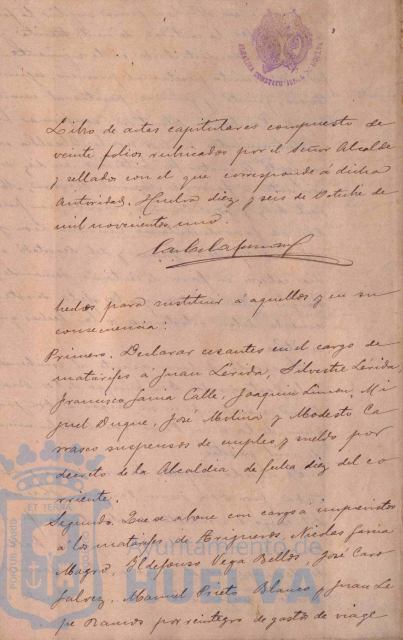 Libro de actas capitulares compuesto de
veinte folios rubricados por el Señor Alcalde
y sellados con el que corresponde á dicha
Autoridad. Huelva diez y seis de Octubre de
mil novecientos uno.
hechos para sustituir á aquellos y en su
consecuencia:
Primero. Declarar cesantes en el cargo de
matarifes á Juan Lérida, Silvestre Lérida,
Francisco Jania Calle, Joaquin Limon, Mi
guel Duque, José Molina y Modesto Ca
rrasco suspensos de empleo y sueldo por
decreto de la Alcaldía de fecha diez del co
rriente.
Segundo. Que se abone con cargo á imprevistos
á los matarifes de Trigueros, Nicolas
Ildefonso Vega Bellos, José Caro
Manuel Prieto Blanco y Juan Le
pe Ramos por reintegro de gastos de viage
PORTUS MARIS
ET TERRÆ
Ayuntamiento de
HUELVA